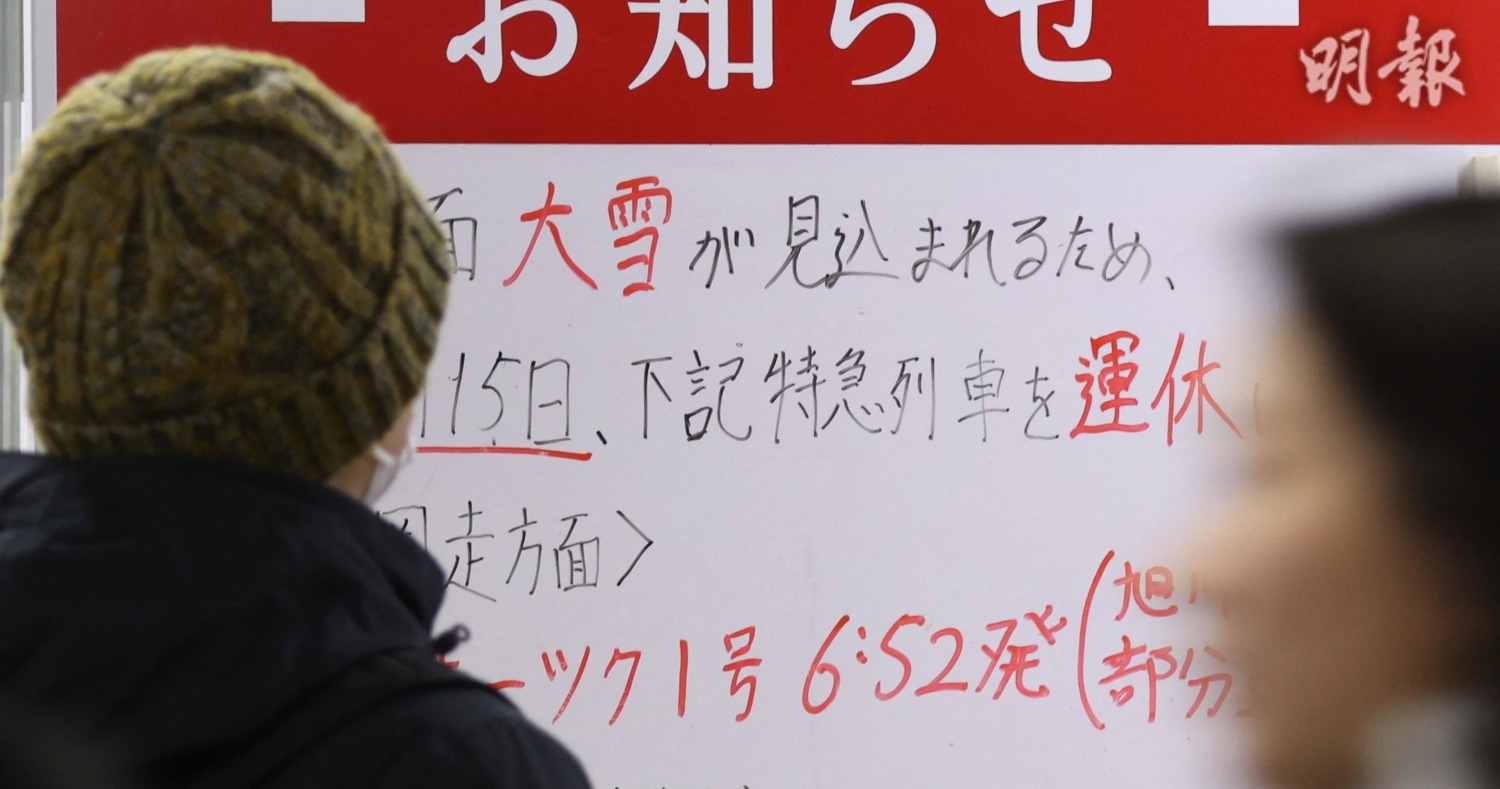 お知らせ
明報
面 大雪が見込まれるため、
15日、下記特急列車を運休
走方面〉
ーツク1号 6:52発(旭
部分